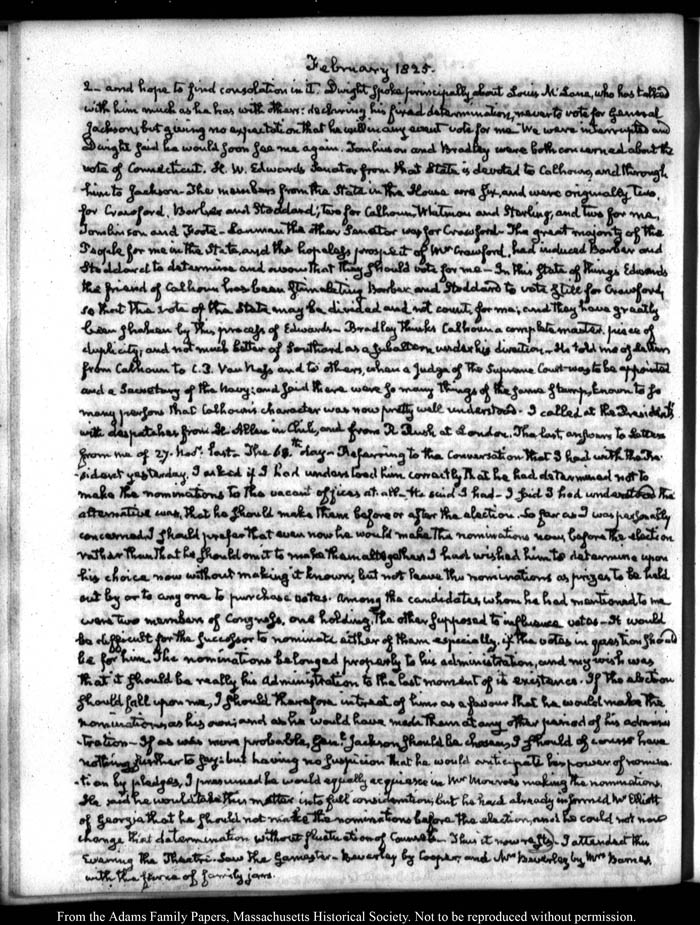 February 1825.
2— and hope to find consolation in it. Dwight spoke principally about Louis McLane, who has talked
with him much as he has with others: declaring his fixed determination, never to vote for General
Jackson, but giving no expectation that he will in any event vote for me. We were interrupted and
Dwight said he would soon see me again. Tomlinson and Bradley were both concerned about the
vote of Connecticut. H. W. Edwards Senator from that State is devoted to Calhoun, and through
him to Jackson— The members from the State in the House are six, and were originally two
for Crawford, Barber and Stoddard; two for Calhoun, Whitman and Sterling, and two for me,
Tomlinson and Foote— Lanman the other Senator was for Crawford— The great majority of the
People for me in the State, and the hopeless prospect of Mr Crawford, had induced Barber and
Stoddard to determine and avow that they should vote for me— In this State of things Edwards
the friend of Calhoun has been stimulating Barber and Stoddard to vote still for Crawford,
so that the vote of the State may be divided and not count, for me; and they have greatly
been shaken by this process of Edwards— Bradley thinks Calhoun a complete master-piece of
duplicity, and not much better of Southard as a subaltern under his direction— He told me of letters
from Calhoun to C. P. Van Ness and to others, when a Judge of the Supreme Court was to be appointed
and a Secretary of the Navy: and said there were so many things of the same stamp, known to so
many persons that Calhoun's character was now pretty well understood— I called at the President's
with despatches from H. Allen in Chili, and from R. Rush at London. The last, answers to Letters
from me of 27. Novr. last— The 68th day— Referring to the conversation that I had with the Pre-
-sident yesterday, I asked if I had understood him correctly that he had determined not to
make the nominations to the vacant offices at all— He said I had— I said I had understood the
alternative was, that he should make them before or after the election. So far as I was personally
concerned I should prefer that even now he would make the nominations now, before the election
rather than that he should omit to make them altogether. I had wished him to determine upon
his choice now without making it known; but not leave the nominations as prizes to be held
out by or to any one to purchase votes. Among the candidates whom he had mentioned to me
were two members of Congress, one holding, the other supposed to influence votes— It would
be difficult for the successor to nominate either of them especially, if the votes in question should
be for him. The nominations belonged properly to his administration, and my wish was
that it should be really his Administration to the last moment of its existence. If the election
should fall upon me, I should therefore intreat of him as a favour that he would make the
nominations, as his own; and as he would have made them at any other period of his adminis
-tration— If as was more probable, Genl. Jackson should be chosen, I should of course have
nothing further to say: but having no suspicion that he would anticipate his power of nomina-
-tion by pledges, I presumed he would equally acquiesce in Mr Monroe's making the nominations.
He said he would take this matter into full consideration; but he had already informed Mr Elliott
of Georgia that he should not make the nominations before the election, and he could not now
change that determination without fluctuation of Counsels— Thus it now rests— I attended this
Evening the Theatre— Saw the Gamester— Beverley by Cooper, and Mrs Beverley by Mrs Barnes,
with the farce of family jars.
From the Adams Family Papers, Massachusetts Historical Society. Not to be reproduced without permission.